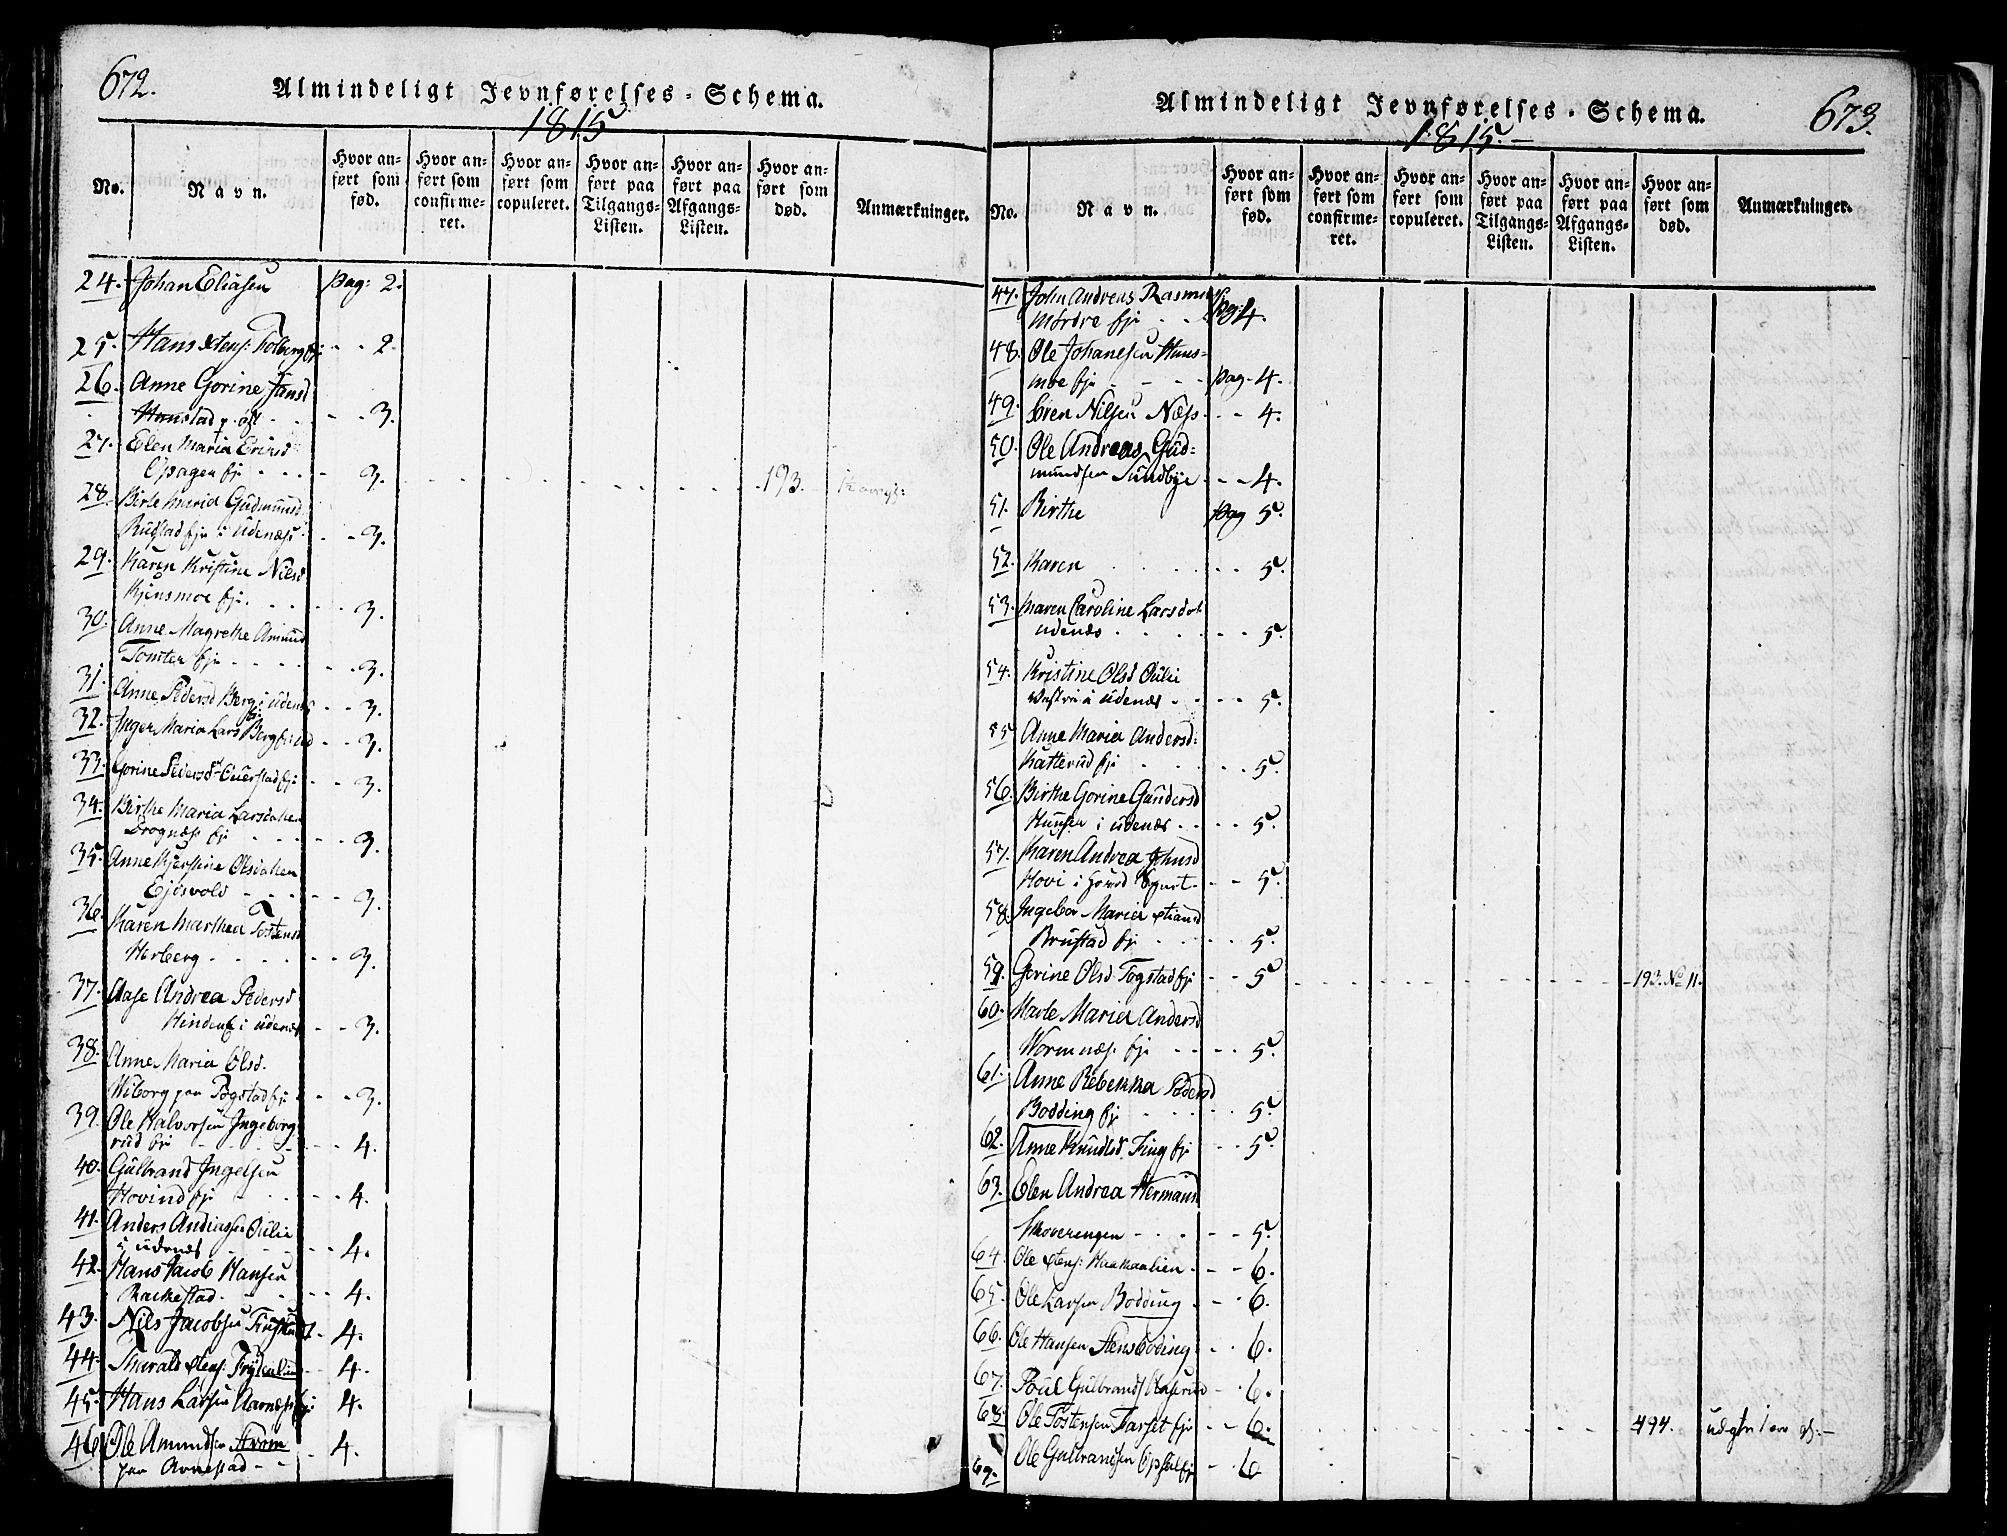 672.
Almindeligt Jevnførelses-Schema.
1815
No.
Navn.
Hvor an-
ført som
fød.
Hvor an-
ført som
confirme-
ret.
Hvor an-
ført som
copuleret.
Hvor an-
ført paa
Tilgangs-
Listen.
Hvor an-
ført paa
Afgangs-
Listen.
Hvor an-
ført som
død.
Anmærkninger.
24. Johan Eliasen Pag: 2.
25. Hans Xtens: Tolberg fj - - 2.
26. Anne Gorine Jansd
Hanstad - - 3.
27. Elen Maria Ericsd
Opagen fj - - - 3. 193.
28. Birte Maria Gudmunsd
Rustad fj i Udenæs - - 3.
29. Karen Kristine Nilsd
Kjensmoe fj. - - - 3.
30. Anne Magrethe Amund
Tomter fj - - - 3.
31. Anne Pedersd Berg i Udenæs - - 3.
32. Inger Maria Lars Berg - - 3.
33. Gorine Pedersd fj - - 3.
34. Birthe Maria Larsdatter
Drognæs fj - - - 3.
35. Anne Kjerstine Olsdatter
Ejdsvold - - - 3.
36. Karen Marthea Tostensd
Herberg - - - 3.
37. Aase Andrea Pedersd
i Udenæs - - 3.
38. Anne Maria Olsd.
Wiborg paa Togstad fj - - 3.
39. Ole Halvorsen Ingeborg
rud fj - - - 4.
40. Gulbrand Ingelsen
Hovind fj - - - 4.
41. Anders Andiassen Oulie
i Udenæs - - - 4.
42. Hans Jacob Hansen
Rackestad - - - 4.
43. Nils Jacobsen - 4.
44. Thorald Xtens: - 4.
45. Hans Larsen Aarnæs fj 4.
46. Ole Amundsen Strøm
paa Arnestad - - 4.
Almindeligt Jevnførelses-Schema.
673.
1815. -
No.
Navn.
Hvor an-
ført som
fød.
Hvor an-
ført som
confirme-
ret.
Hvor an-
ført som
copuleret.
Hvor an-
ført paa
Tilgangs-
Listen.
Hvor an-
ført paa
Afgangs-
Listen.
Hvor an-
ført som
død.
Anmærkninger.
47. John Andreas Rasmus
Mørdre fj - - pag: 4.
48. Ole Johanesen Huns-
moe fj - - - Pag. 4.
49. Sören Nilsen Næss - - 4.
50. Ole Andreas Gud=
mundsen Sundbye - - 4.
51. Birthe Pag 5.
52. Karen - - 5.
53. Maren Caroline Larsdat
Udenæs - - - 5.
54. Kristine Olsd Oulie
i Udenæs - - - 5.
55 Anne Maria Andersd:
Katterud fj - - 5.
56. Birthe Gorine Gundersd
Hunsen i Udenæs - - - 5.
57. Karen Andrea Johnsd
Hovi i - - 5.
58. Ingebor Maria Xtiansd
Brustad fj - - - 5.
59. Gorine Olsd Togstad fj - - 5 193. No 11.
60. Marte Maria Andersd
Wormnæs fj - - - 5.
61. Anne Rebekka Pedersd
Bodding fj - - - 5.
62. Anne Knudsd. Ting fj - - 5.
63. Elen Andrea Hermans
Skoverengen - - - 5.
64. Ole Xtens: Haakaalien - - - 6.
65. Ole Larsen Bodding - - 6.
66. Ole Hansen Stensboding - - 6.
67. Poul Gulbrands Aaserud - 6.
68. Ole Tostensen Farset fj - - 6. 494.
69. Ole Gulbrandsen Opsal fj - - 6